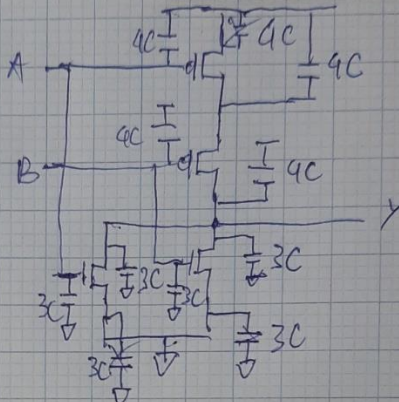 4C
4C
4C
A
4C
B
4C
Y
3C
3C
3C
3C
3C
3C